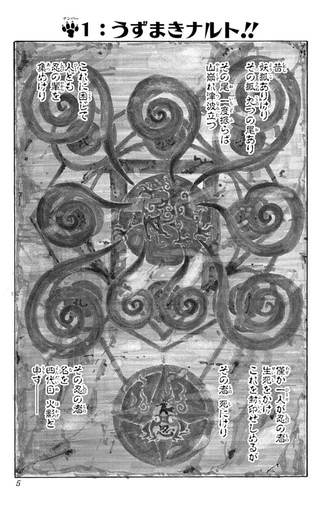 ナンバー
1：うずまきナルト!!
昔
妖狐ありけり
その狐 九つの尾あり
その尾 一度振らば
山崩れ津波立つ
これに困じて
人ども
忍の輩を
集めけり
僅か一人が忍の者
生死をかけ
これを封印せしめるが
その者 死にけり
その忍の者
名を
四代目火影と
申す――
5